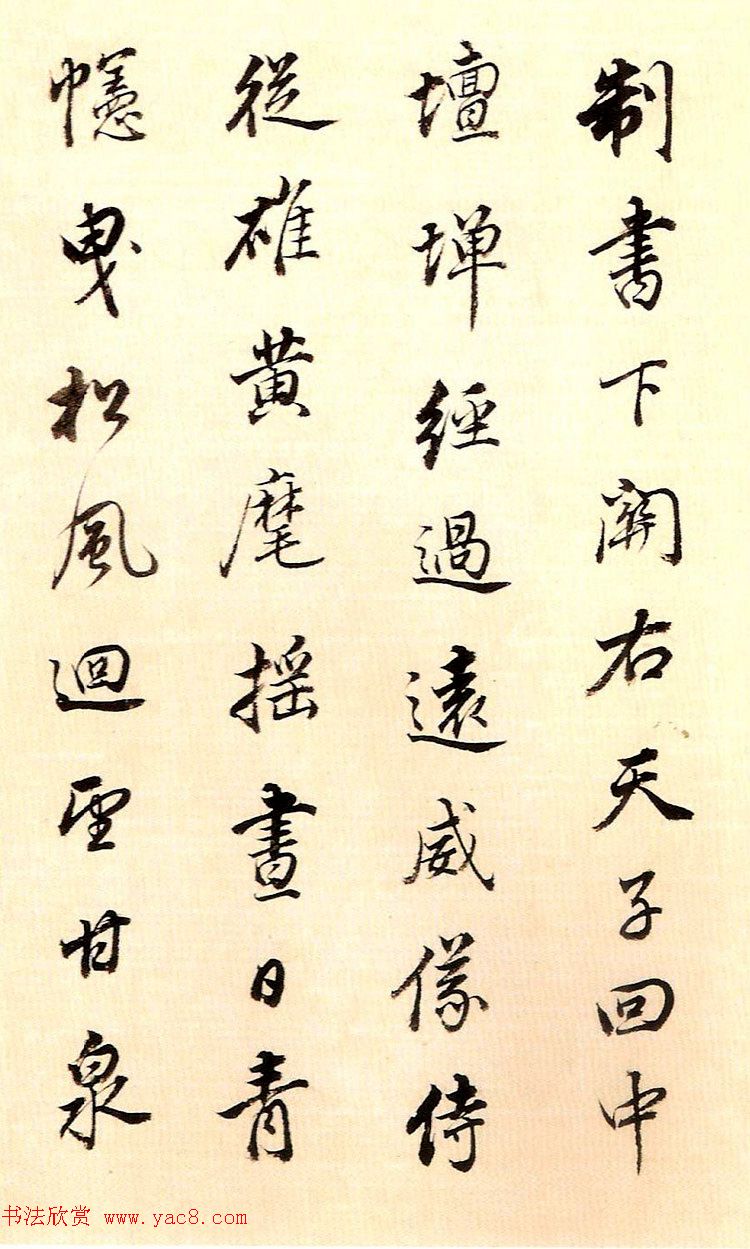 制書下關右天子回中
壇墠經過遠威儀侍
從雄黃麾搖晝日青
幰曳松風迴望甘泉
书法欣赏 www.yac8.com